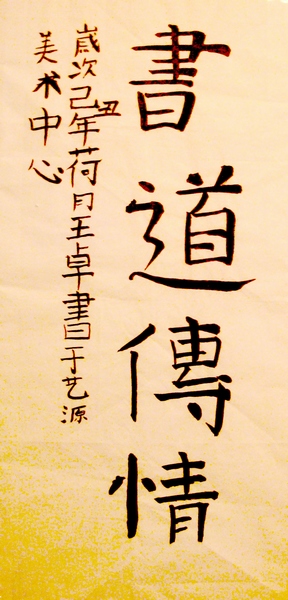 書道傳情
歲次己丑年荷月王卓書于艺源
美术中心